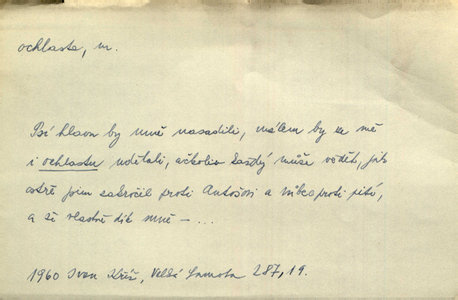 ochlasta, m.
Psí hlavu by mně nasadili, málem by ze mě
i ochlastu udělali, ačkoliv každý může vědět, jak
ostře jsem zakročil proti Antošovi a vůbec proti pití,
a že vlastně dík mně – ...
1960 Ivan Kříž, Velká samota 287, 19.